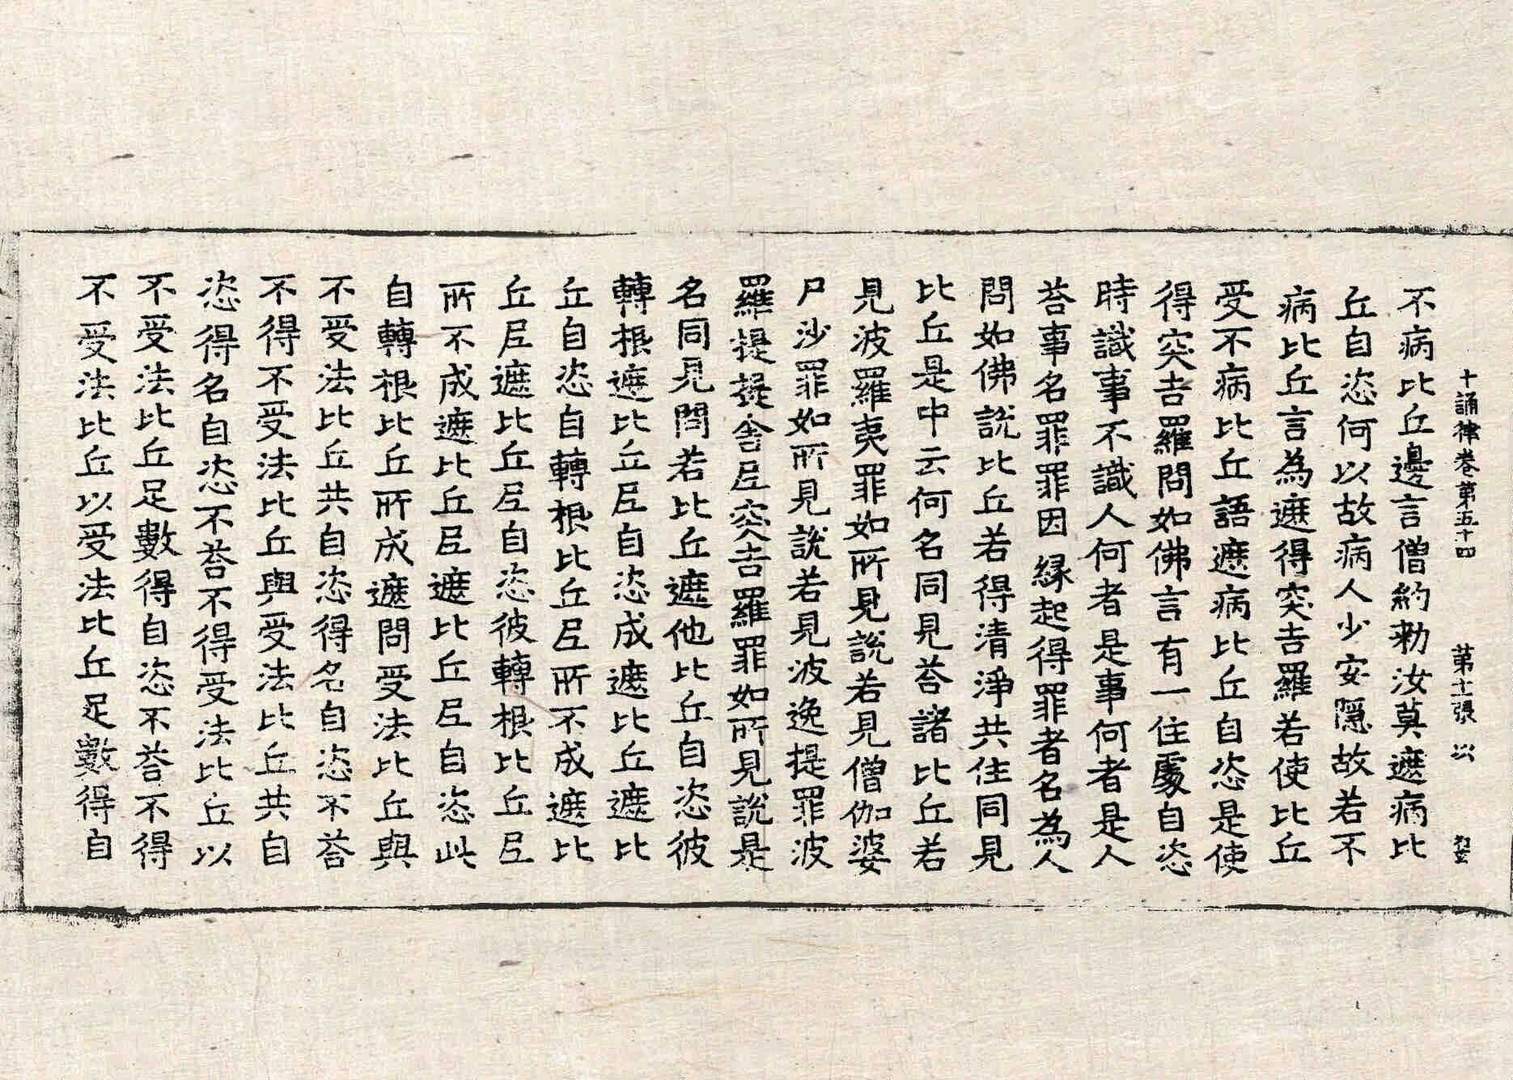 十誦律卷第五十四 第十一張 以
不病比丘邊言僧約勑汝莫遮病比
丘自恣何以故病人少安隱故若不
病比丘言為遮得突吉羅若使比丘
受不病比丘語遮病比丘自恣是使
得突吉羅問如佛言有一住處自恣
時識事不識人何者是事何者是人
荅事名罪罪因緣起得罪者名為人
問如佛說比丘若得清淨共住同見
比丘是中云何名同見荅諸比丘若
見波羅夷罪如所見說若見僧伽婆
尸沙罪如所見說若見波逸提罪波
羅提提舍尼突吉羅罪如所見說是
名同見問若比丘遮他比丘自恣彼
轉根遮比丘尼自恣成遮比丘遮比
丘自恣自轉根比丘尼所不成遮比
丘尼遮比丘尼自恣彼轉根比丘尼
所不成遮比丘尼遮比丘尼自恣此
自轉根比丘所成遮問受法比丘與
不受法比丘共自恣得名自恣不荅
不得不受法比丘與受法比丘共自
恣得名自恣不荅不得受法比丘以
不受法比丘足數得自恣不荅不得
不受法比丘以受法比丘足數得自